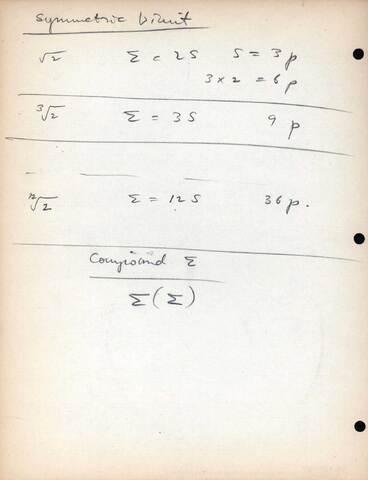 Symmetric Limit
√2 Σ = 2S S = 3p
3 x 2 = 6p
³√2 Σ = 3S 9 p
¹²√2 Σ = 12 S 36 p.
Compound Σ
Σ(Σ)